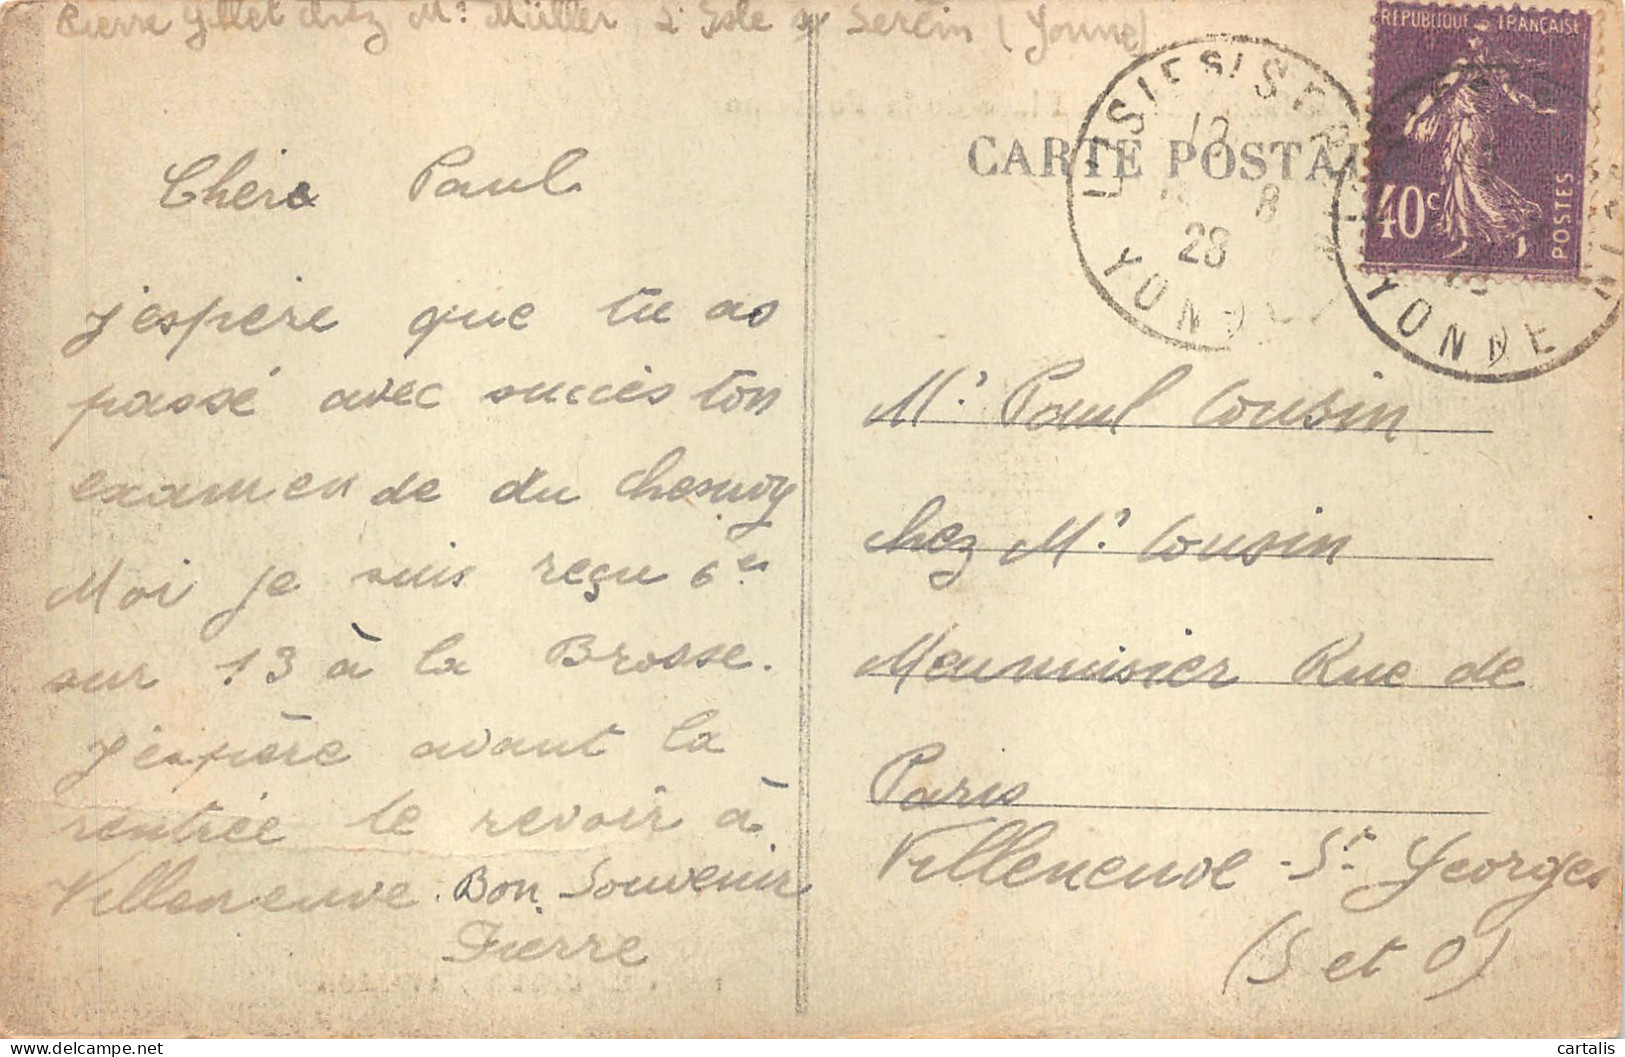 Pierre Gillet chez Mr Müller L'Isle sr Serein (Yonne)
Chère Paul
j'espère que tu as
passé avec succès ton
examen de du Chesnoy
Moi je suis reçu 6es
sur 13 à la Brosse.
J'espère avant la
rentrée te revoir à
Villeneuve. Bon Souvenir
Pierre
CARTE POSTAL
RÉPUBLIQUE FRANÇAISE
40c
POSTES
L'ISLE S/ SER
8
28
YONNE
YONNE
Mr Paul Cousin
chez Mr Cousin
Menuisier Rue de
Paris
Villeneuve-St-Georges
(S et O)
cartalis